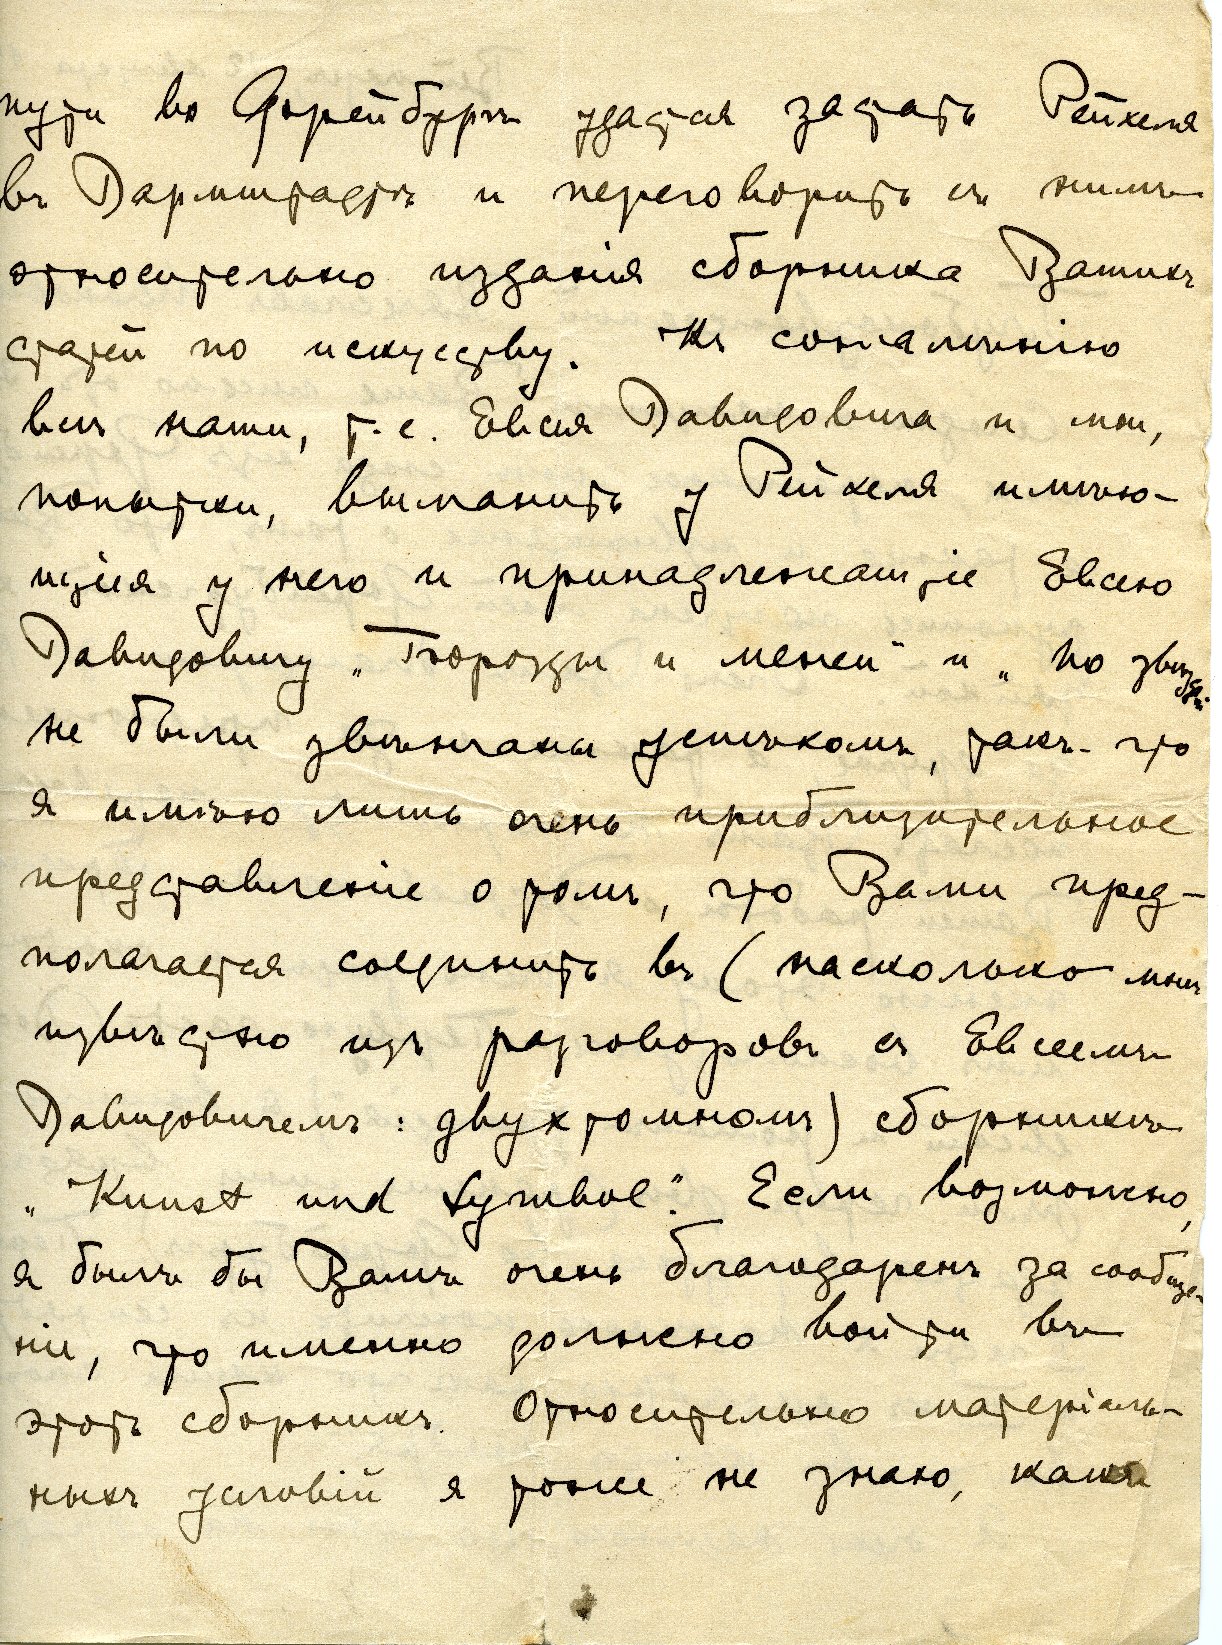 пути во Фрейбургъ удастся застать Рейхеля
въ Дармштадтѣ и переговорить съ нимъ
относительно изданія сборника Вашихъ
статей по искусству. Къ сожалѣнію
всѣ наши, т.е. Евсея Давидовича и мои,
попытки, выманить у Рейхеля имѣю-
щіися у него и принадлежащіе Евсею
Давидовичу „Борозды и межи" и „По звѣздамъ"
не были увѣнчаны успѣхомъ, такъ-что
я имѣю лишь очень приблизительное
представленіе о томъ, что Вами пред-
полагается соединить въ (насколько мнѣ
извѣстно изъ разговоровъ съ Евсеемъ
Давидовичемъ: двухтомномъ) сборникѣ
„Kunst und Symbol". Если возможно,
я былъ бы Вамъ очень благодаренъ за сообще-
ніе, что именно должно войти въ
этотъ сборникъ. Относительно матеріаль-
ныхъ условій я тоже не знаю, какія